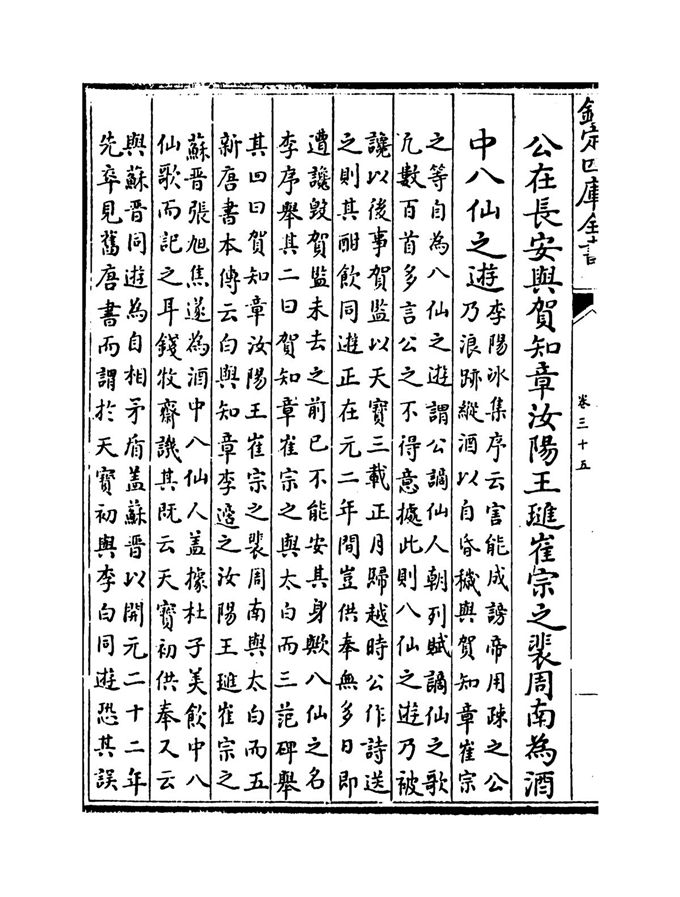 欽定四庫全書
卷三十五
公在長安與賀知章汝陽王璡崔宗之裴周南為酒
中八仙之遊
李陽冰集序云害能成謗帝用疎之公
乃浪跡縱酒以自昏穢與賀知章崔宗
之等自為八仙之遊謂公謫仙人朝列賦謫仙之歌
凢數百首多言公之不得意據此則八仙之遊乃被
讒以後事賀監以天寳三載正月歸越時公作詩送
之則其酣飲同遊正在元二年間豈供奉無多日即
遭讒毀賀監未去之前已不能安其身歟八仙之名
李序舉其二曰賀知章崔宗之與太白而三范碑舉
其四曰賀知章汝陽王崔宗之裴周南與太白而五
新唐書本傳云白與知章李適之汝陽王璡崔宗之
蘇晋張旭焦遂為酒中八仙人盖據杜子美飲中八
仙歌而記之耳錢牧齋譏其既云天寳初供奉又云
與蘇晋同遊為自相矛盾盖蘇晋以開元二十二年
先卒見舊唐書而謂於天寳初與李白同遊恐其誤